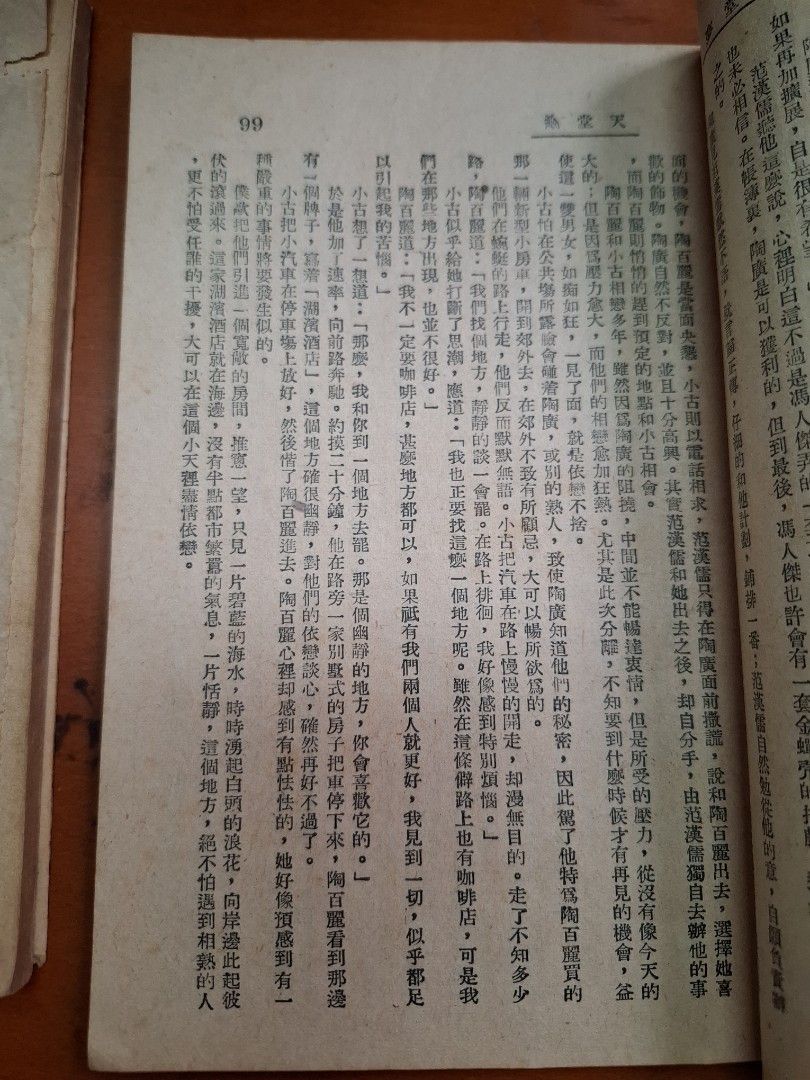 天堂
99
面的機會，陶百麗是當面央懇，小古則以電話相求，范漢儒只得在陶廣面前撒謊，說和陶百麗出去，選擇她喜
歡的飾物。陶廣自然不反對，並且十分高興。其實范漢儒和她出去之後，却自分手，由范漢儒獨自去辦他的事
，而陶百麗則悄悄的趕到預定的地點和小古相會。
陶百麗和小古相戀多年，雖然因爲陶廣的阻撓，中間並不能暢達衷情，但是所受的壓力，從沒有像今天的
大的；但是因爲壓力愈大，而他們的相戀愈加狂熱。尤其是此次分離，不知要到什麼時候才有再見的機會，益
使這一雙男女，如痴如狂，一見了面，就是依戀不捨。
小古怕在公共場所露臉會碰着陶廣，或別的熟人，致使陶廣知道他們的秘密，因此駕了他特爲陶百麗買的
那一輛新型小房車，開到郊外去，在郊外不致有所顧忌，大可以暢所欲爲的。
他們在蜿蜒的路上行走，他們反而默默無語。小古把汽車在路上慢慢的開走，却漫無目的。走了不知多少
路，陶百麗道：「我們找個地方，靜靜的談一會罷。在路上徘徊，我好像感到特別煩惱。」
小古似乎給她打斷了思潮，應道：「我也正要找這麼一個地方呢。雖然在這條僻路上也有咖啡店，可是我
們在那些地方出現，也並不很好。」
陶百麗道：「我不一定要咖啡店，甚麼地方都可以，如果祇有我們兩個人就更好，我見到一切，似乎都足
以引起我的苦惱。」
小古想了一想道：「那麼，我和你到一個地方去罷。那是個幽靜的地方，你會喜歡它的。」
於是他加了速率，向前路奔馳。約摸二十分鐘，他在路旁一家別墅式的房子把車停下來，陶百麗看到那邊
有一個牌子，寫着「湖濱酒店」，這個地方確很幽靜，對他們的依戀談心，確然再好不過了。
小古把小汽車在停車場上放好，然後偕了陶百麗進去。陶百麗心裡却感到有點怯怯的，她好像預感到有一
種嚴重的事情將要發生似的。
僕歐把他們引進一個寬敞的房間，推窻一望，只見一片碧藍的海水，時時湧起白頭的浪花，向岸邊此起彼
伏的滾過來。這家湖濱酒店就在海邊，沒有半點都市繁囂的氣息，一片恬靜，這個地方，絕不怕遇到相熟的人
，更不怕受任誰的干擾，大可以在這個小天裡盡情依戀。